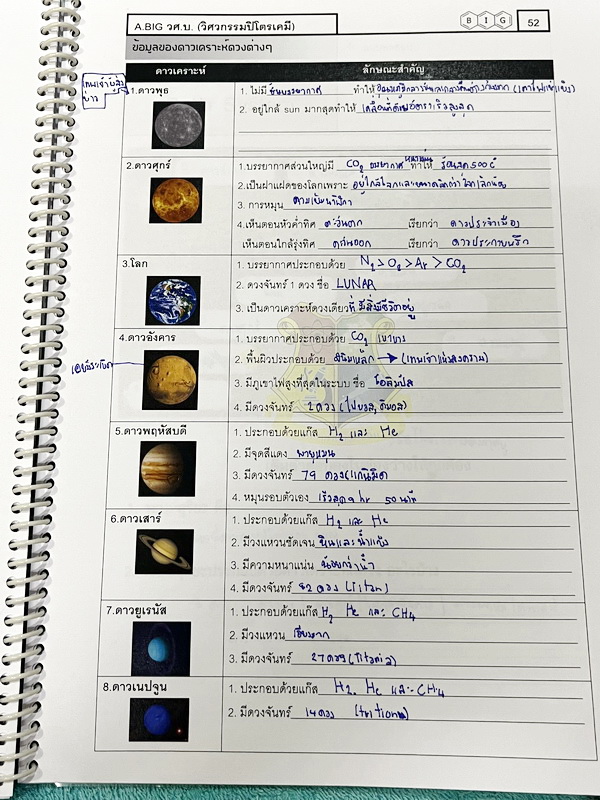 A.BIG วศ.บ. (วิศวกรรมปิโตรเคมี)
B I G
52
ข้อมูลของดาวเคราะห์ดวงต่างๆ
ดาวเคราะห์ ลักษณะสำคัญ
1.ดาวพุธ
1. ไม่มี ชั้นบรรยากาศ ทำให้
2. อยู่ใกล้ sun มากสุดทำให้
2.ดาวศุกร์
1.บรรยากาศส่วนใหญ่มี CO2 บรรยากาศหนาแน่น ทำให้ ร้อนสุด 500 c
2.เป็นฝาแฝดของโลกเพราะ อยู่ใกล้โลกและขนาด
3. การหมุน ตามเข็มนาฬิกา
4.เห็นตอนหัวค่ำทิศ ตะวันตก เรียกว่า ดาวประจำเมือง
เห็นตอนใกล้รุ่งทิศ ตะวันออก เรียกว่า ดาวประกายพรึก
3.โลก
1. บรรยากาศประกอบด้วย N2 > O2 > Ar > CO2
2. ดวงจันทร์ 1 ดวง ชื่อ LUNAR
3. เป็นดาวเคราะห์ดวงเดียวที่ มีสิ่งมีชีวิตอยู่
4.ดาวอังคาร
1. บรรยากาศประกอบด้วย CO2 เบาบาง
2. พื้นผิวประกอบด้วย สนิมเหล็ก → (เทพเจ้าแห่งสงคราม)
3. มีภูเขาไฟสูงที่สุดในระบบ ชื่อ โอลิมปัส
4. มีดวงจันทร์ 2 ดวง
5.ดาวพฤหัสบดี
1. ประกอบด้วยแก๊ส H2 และ He
2. มีจุดสีแดง พายุหมุน
3. มีดวงจันทร์ 79 ดวง แกนิมีด
4. หมุนรอบตัวเอง เร็วสุด 9 hr 50 นาที
6.ดาวเสาร์
1. ประกอบด้วยแก๊ส H2 และ He
2. มีวงแหวนชัดเจน หินและน้ำแข็ง
3. มีความหนาแน่น น้อยกว่าน้ำ
4. มีดวงจันทร์ 82 ดวง
7.ดาวยูเรนัส
1. ประกอบด้วยแก๊ส H2 He และ CH4
2. มีวงแหวน
3. มีดวงจันทร์ 27 ดวง (Titania)
8.ดาวเนปจูน
1. ประกอบด้วยแก๊ส H2 He และ CH4
2. มีดวงจันทร์ 14 ดวง